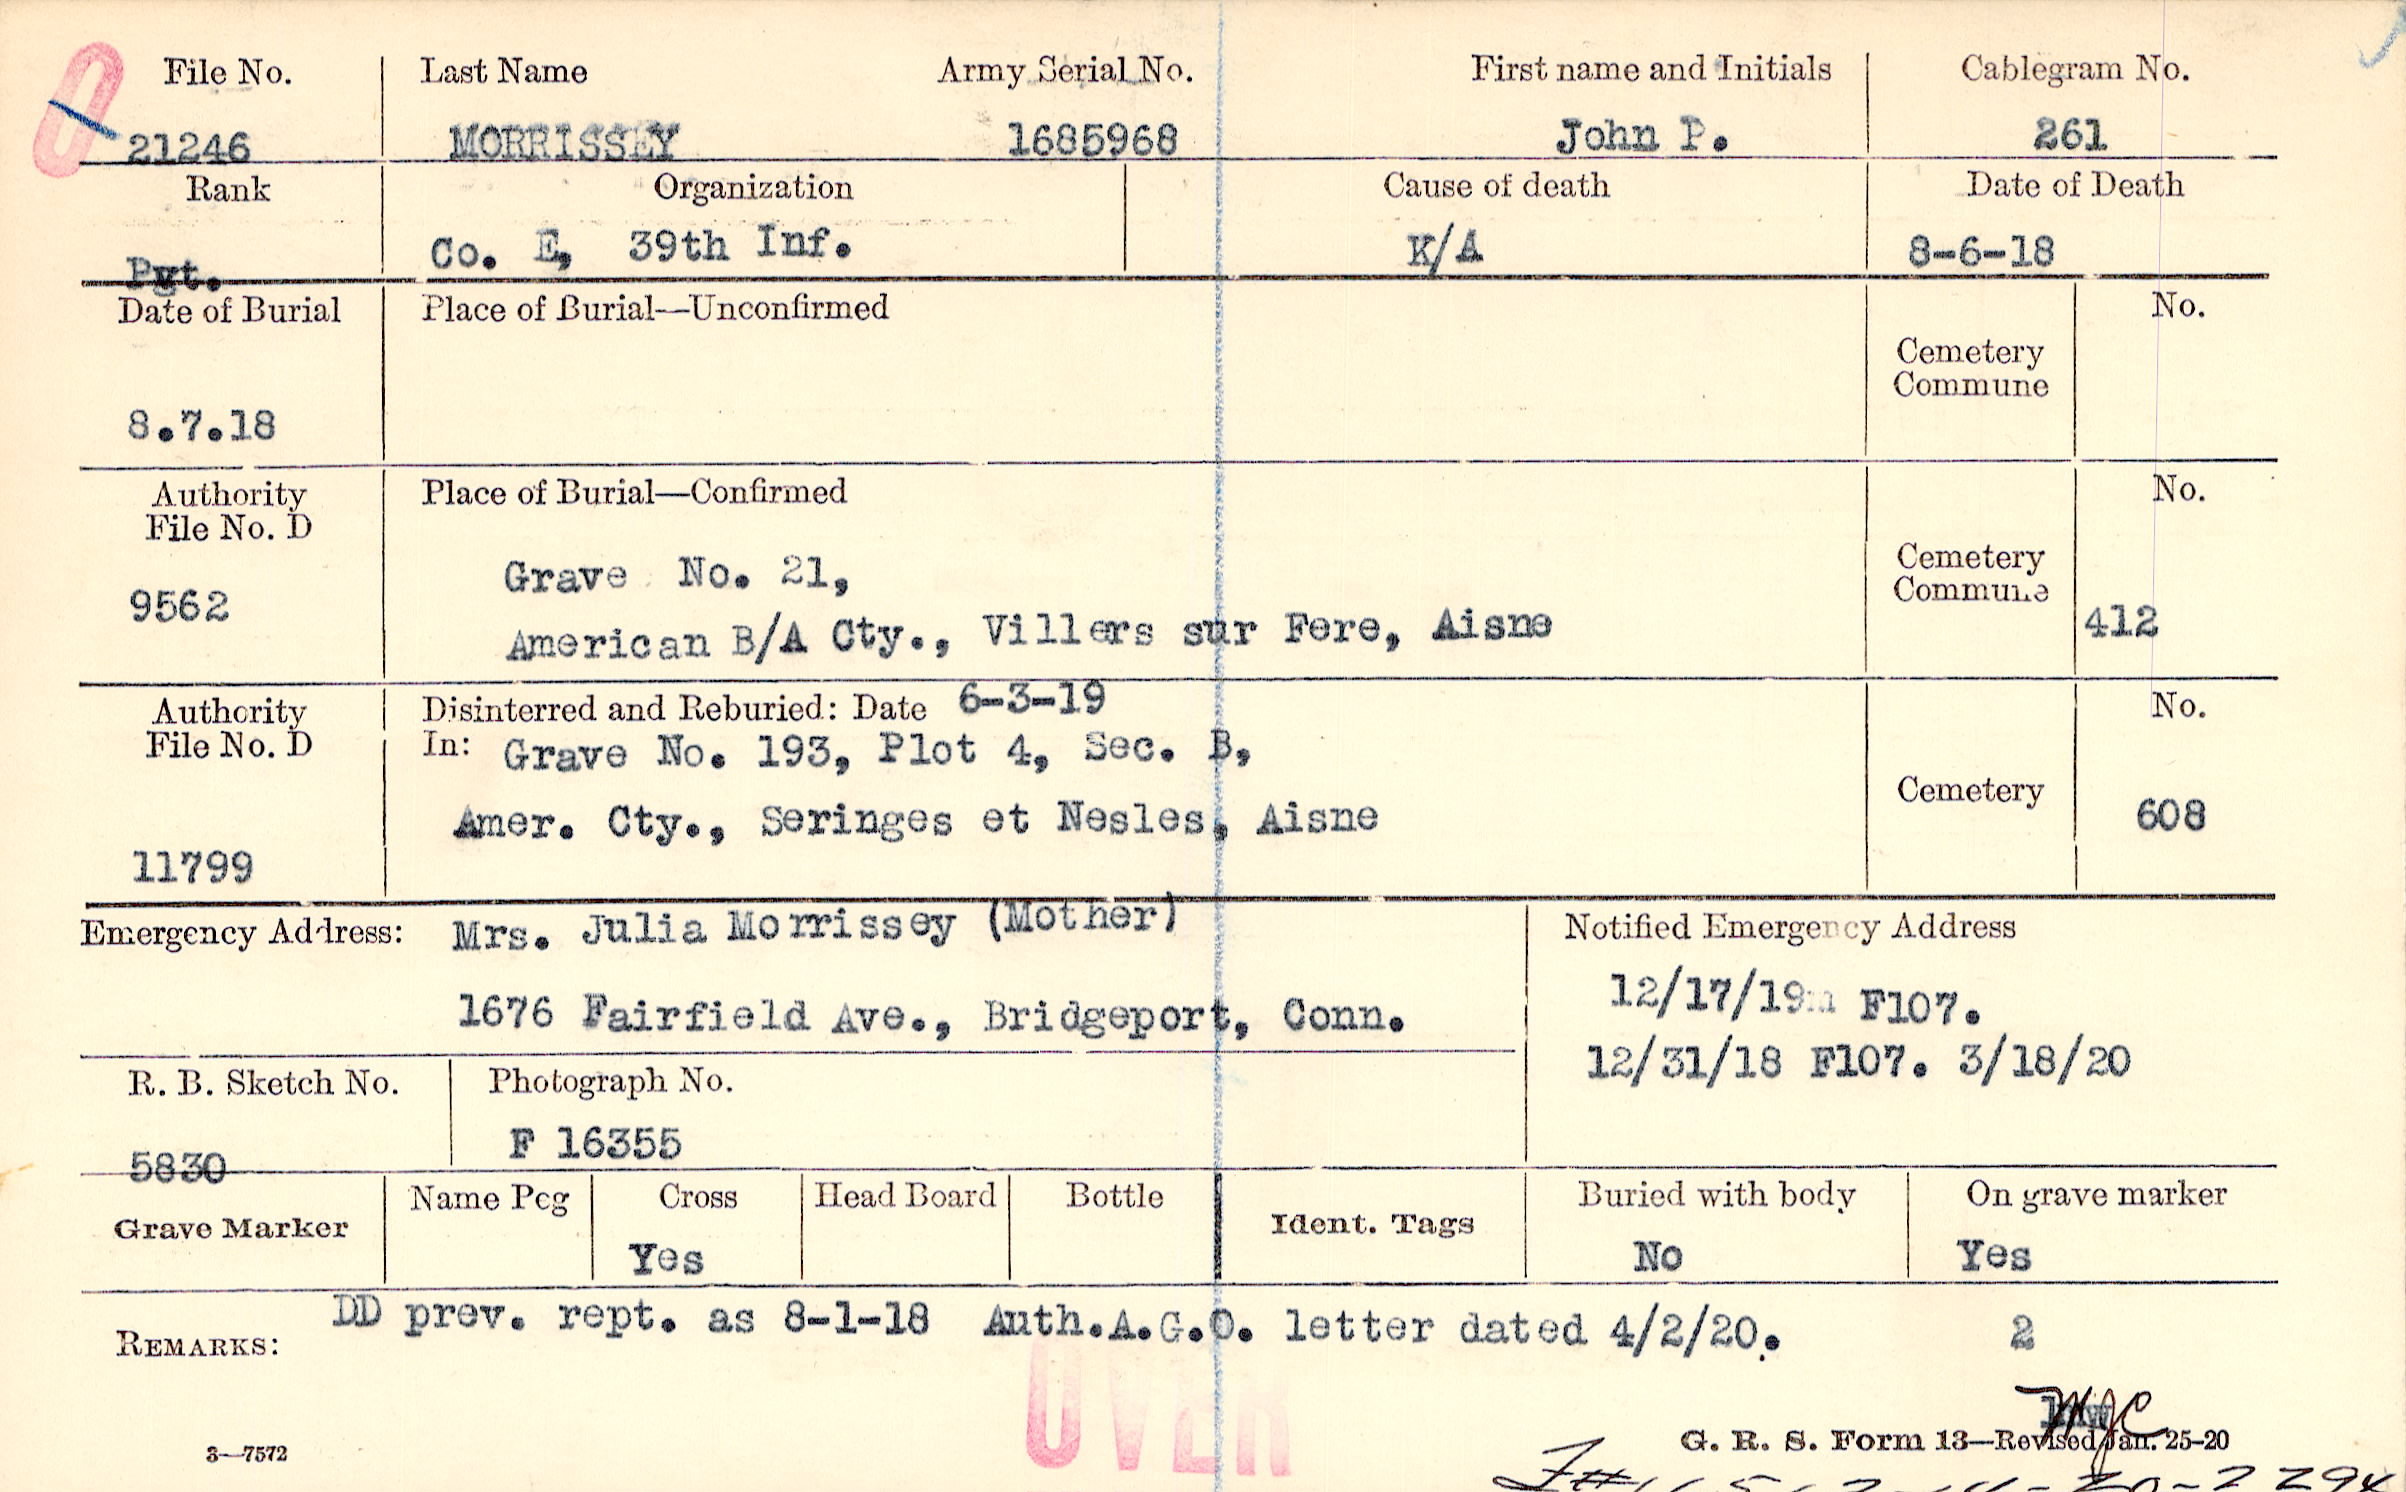 O
File No. Last Name Army Serial No. First name and Initials Cablegram No.
21246 MORRISSEY 1685968 John P. 261
Rank Organization Cause of death Date of Death
Pvt. Co. E, 39th Inf. K/A 8-6-18
Date of Burial Place of Burial—Unconfirmed No.
Cemetery
Commune
8.7.18
Authority Place of Burial—Confirmed No.
File No. D
9562 Grave No. 21, Cemetery
Commune
American B/A Cty., Villers sur Fere, Aisne 412
Authority Disinterred and Reburied: Date 6-3-19 No.
File No. D In: Grave No. 193, Plot 4, Sec. B,
Cemetery
Amer. Cty., Seringes et Nesles, Aisne 608
11799
Emergency Address: Mrs. Julia Morrissey (Mother) Notified Emergency Address
12/17/19 F107.
1676 Fairfield Ave., Bridgeport, Conn.
12/31/18 F107. 3/18/20
R. B. Sketch No. Photograph No.
5830 F 16355
Grave Marker Name Peg Cross Head Board Bottle Ident. Tags Buried with body On grave marker
Yes No Yes
REMARKS: DD prev. rept. as 8-1-18 Auth.A.G.O. letter dated 4/2/20. 2
OVER
MJC
3—7572 G. R. S. Form 13—Revised Jan. 25-20